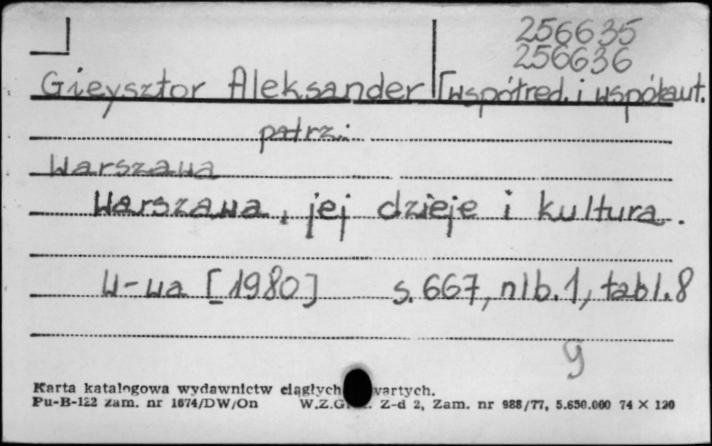 256635
256636
Gieysztor Aleksander [współred. i współaut.
patrz:
Warszawa
Warszawa, jej dzieje i kultura.
W-wa [1980] s. 667, nlb. 1, tabl. 8
g
Karta katalogowa wydawnictw ciągłych wartych.
Pu-B-122 zam. nr 1674/DW/On W.Z.G. Z-d 2, Zam. nr 988/77, 5.650.000 74 × 120